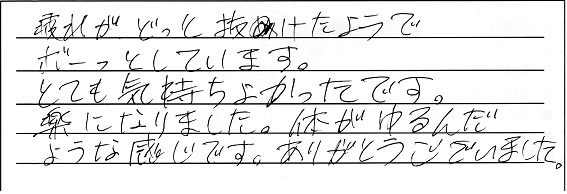 疲れがどっと抜けたようで
ボーっとしています。
とても気持ちよかったです。
楽になりました。体がゆるんだ
ような感じです。ありがとうございました。